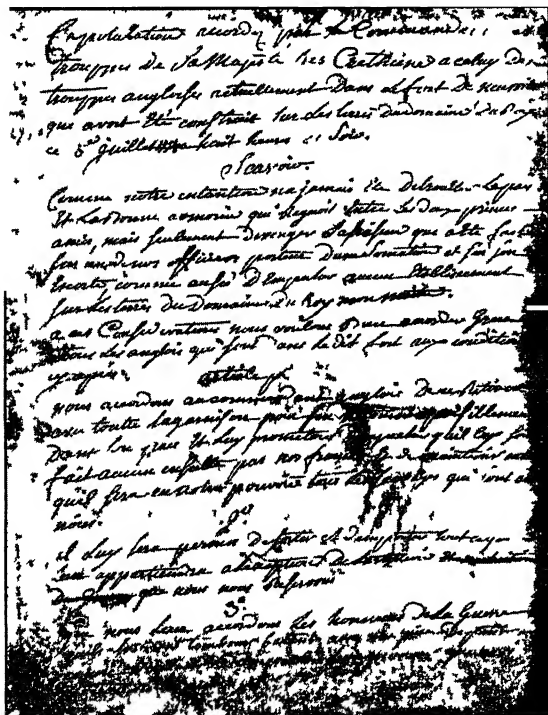 Capitulation accordée par le Commandant
trouppes de Sa Majesté tres Crethiene a celuy des
trouppes angloises actuellement dans le fort de
qui avoit Eté construit sur les terres du domaine du Roy
ce 3e Juillet a huit heures du Soir.
Scavoir
Comme notre intention n'a jamais Eté de troubler la paix
Et la bonne armonie qui Regnoit Entre les deux princes
amis, mais seulement de venger l'assassin qui a eté fait
sur un de nos officiers porteur d'une Sommation et sur son
Escorte, comme aussi d'Empecher aucun Etablissement
sur les terres du Domaine du Roy mon maitre.
a ces Considerations nous voulons bien accorder grace
a tous les anglois qui sont dans le dit fort aux conditions
cy apres.
article 1er
nous accordons au commandant anglois de se Retirer
avec toute la garnison pour s'en paisiblement
Dans son pays Et luy promettons d'empecher qu'il luy soit
fait aucun insulte par nos françois Et de maintenir
qu'il sera en notre pouvoir tous les Sauvages qui sont avec
nous.
2e
il luy sera permis de sortir et d'emporter tout ce qui
leur appartiendra a l'exception de l'artillerie
que nous nous Reservons
3e
que nous leur accordons les honneurs de la Guerre
qu'ils sortiront tambour battant avec une piece de petit